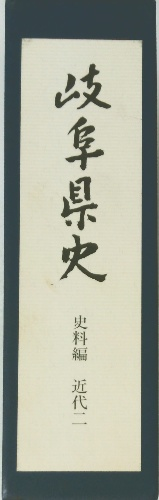 岐阜県史
史料編 近代二